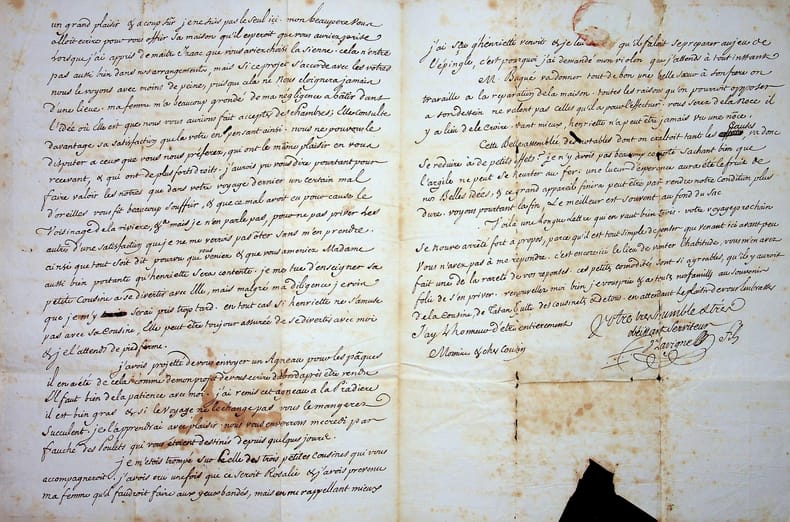 un grand plaisir & a coup sur je ne suis pas le seul ici. mon beaupere vous
alloit ecrire pour vous offrir sa maison qu'il esperoit que vous auriez prise
lorsque j'ai appris de maitre Izaac que vous aviez choisi la sienne. cela n'entre
pas aussi bien dans nos arrangements, mais si ce projet s'accorde avec les votres
nous le voyons avec moins de peine, puisque cela ne nous eloignera jamais
d'une lieue. ma femme m'a beaucoup grondé de ma négligence a bâtir dans
l'idée où elle est que nous vous aurions fait accepter des chambres; Elle consulte
davantage sa satisfaction que la votre en pensant ainsi. nous ne pouvons le
disputer a ceux que vous nous préférez, qui ont le même plaisir en vous
recevant, & qui ont de plus forts droits. j'aurois pu vous dire pourtant pour
faire valoir les notres que dans votre voyage dernier un certain mal
d'oreilles vous fit beaucoup souffrir, & que ce mal avoit eu pour cause le
Voisinage de la riviere, & mais je n'en parle pas, pour ne pas priver les
autres d'une satisfaction que je ne me verrois pas ôter sans m'en prendre.
ainsi que tout soit dit pourvu que vous veniez & que vous ameniez Madame
aussi bien portante qu'henriette sera contente. je me tue d'enseigner sa
petite Cousine a se divertir avec Elle, mais malgré ma diligence je crois
que je m'y serai pris trop tard. en tout cas si henriette ne s'amuse
pas avec sa Cousine, Elle peut être toujours assurée de se divertir avec moi
& je l'attends de pied ferme.
j'avois projetté de vous envoyer un Agneau pour les pâques
il en a été de cela comme de mon projet de vous ecrire d'abord après être rendu
Il faut bien de la patience avec moi. j'ai remis cet agneau a la Piadiere
il est bien gras & si le voyage ne le change pas vous le mangerez
succulent. je l'apprendrai avec plaisir. nous vous enverrons mecredi par
fauche des Poulets qui vous etoient destinés depuis quelques jours.
je m'étois trompé sur Celle des trois petites Cousines qui vous
accompagneroit. j'avois cru une fois que ce seroit Rosalie & j'avois prevenu
ma femme qu'il faudroit faire aux yeux bandés, mais en me rappellant mieux
j'ai sçu qu'henriette venoit & je leur qu'il falloit se preparer au jeu de
l'épingle, c'est pourquoi j'ai demandé mon violon que j'attends à tout instant
M. Buque va donner tout de bon une belle Sœur à Bonfaire on
travaille a la reparation de la maison. toutes les raisons qu'on pourroit opposer
a son dessein ne valent pas celles qu'il a pour l'effectuer. vous serez de la Noce, il
y a lieu de le croire. tant mieux, henriette n'a peut être jamais vu une nôce.
Cette Belle assemblée de notables dont on exaltoit tant les va donc
se reduire a de petits effets? je n'y avois pas beaucoup compté sachant bien que
l'argile ne peut se heurter au fer. une lueur d'esperance aura été le fruit de
nos Belles idées, & ce grand apparat finira peut être par rendre notre Condition plus
dure. voyons pourtant la fin, Le meilleur est souvent au fond du Sac
Voila une longue lettre qui en vaut bien trois. votre voyage prochain
se trouve arrêté fort a propos, parce qu'il est tout simple de penser que venant ici avant peu
Vous n'avez pas à me repondre. c'est encore ici le lieu de vanter l'habitude, vous m'en avez
fait une de la rareté de vos reponses. ces petites comodités sont si agréables, qu'il y auroit
folie de s'en priver. renouvellez moi bien je vous prie & a toute ma famille au souvenir
de la Cousine, de Tatan, Celle des cousinets, & de tous. en attendant le plaisir de vous embrasser
J'ay L'honneur d'être entierement
Votre tres humble & tres
Monsieur & cher Cousin
obeissant Serviteur
Lavigne fils